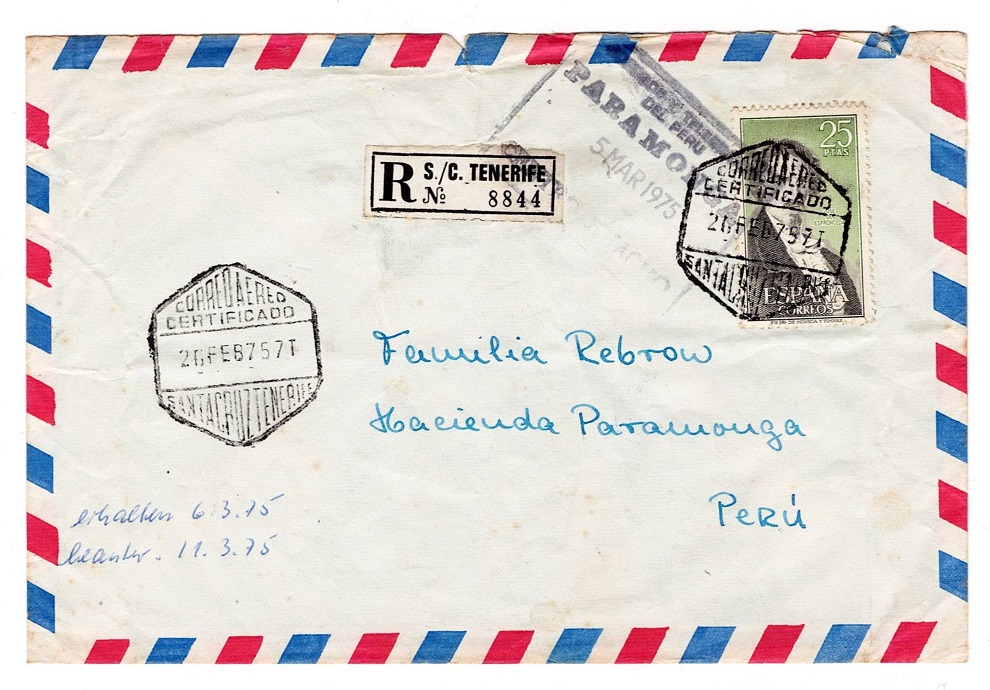 DEL PERU
PARAMONGA
5 MAR 1975
25
PTAS
ESPAÑA
CORREOS
R S./C. TENERIFE
No 8844
CORREO AEREO
CERTIFICADO
26 FEB 75 7T
SANTA CRUZ TENERIFE
CORREO AEREO
CERTIFICADO
26 FEB 75 7T
SANTA CRUZ TENERIFE
Familia Rebrow
Hacienda Paramonga
Perú
erhalten 6.3.75
beantw. 11.3.75